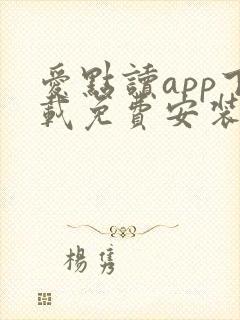 愛點讀app下
載免費安裝
楊雋